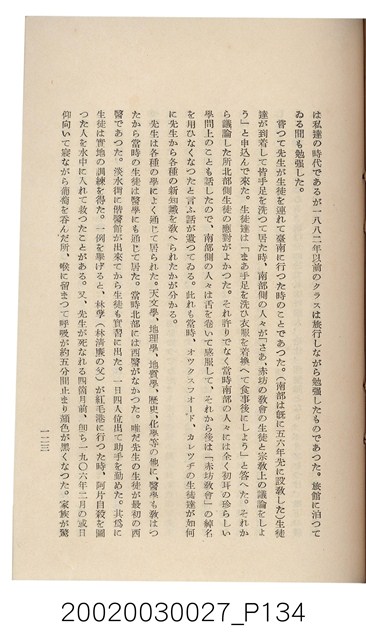 は私達の時代であるが一八八二年以前のクラスは旅行しながら勉強したものであつた。旅館に泊つて
ゐる間も勉強した。
嘗つて先生が生徒を連れて臺南に行つた時のことであつた。(南部は既に五六年先に設教した)生徒
達が到着して皆手足を洗つて居た時、南部側の人々が「さあ、赤坊の敎會の生徒と宗敎上の議論をしよ
う」と申込んで來た。生徒達は「まあ手足を洗ひ衣服を着換へて食事後にしよう」と答へた。それか
ら議論した所北部側生徒の應對がよかつた。それ許りでなく當時南部の人々には全く初耳の珍らしい
學問上のことも話したので、南部側の人々は舌を卷いて感服して、それから後は「赤坊敎會」の綽名
を用ひなくなつたと言ふ話が遺つてゐる。此れも當時、オツクスフオード、カレツヂの生徒達が如何
に先生から各種の新知識を敎へられたかが分かる。
先生は各種の學によく通じて居られた。天文學、地理學、地質學、歷史、化學等の他に、醫學も敎はつ
たから當時の生徒は醫學にも通じて居た。當時北部には西醫がなかつた。唯だ先生の生徒が最初の西
醫であつた。淡水街に偕醫館が出來てから生徒も實習に出た。一日四人位出て助手を勤めた。其爲に
生徒は實地の訓練を得た。一例を擧げると、林孽(林淸廉の父)が紅毛港に行つた時、阿片自殺を圖
つた人を水中に入れて救つたことがある。又、先生が死なれる四箇月前、卽ち一九〇六年二月の或日
仰向いて寢ながら葡萄を吞んだ所、喉に留まつて呼吸が約五分間止まり顏色が黑くなつた。家族が驚
一二三
20020030027_P134